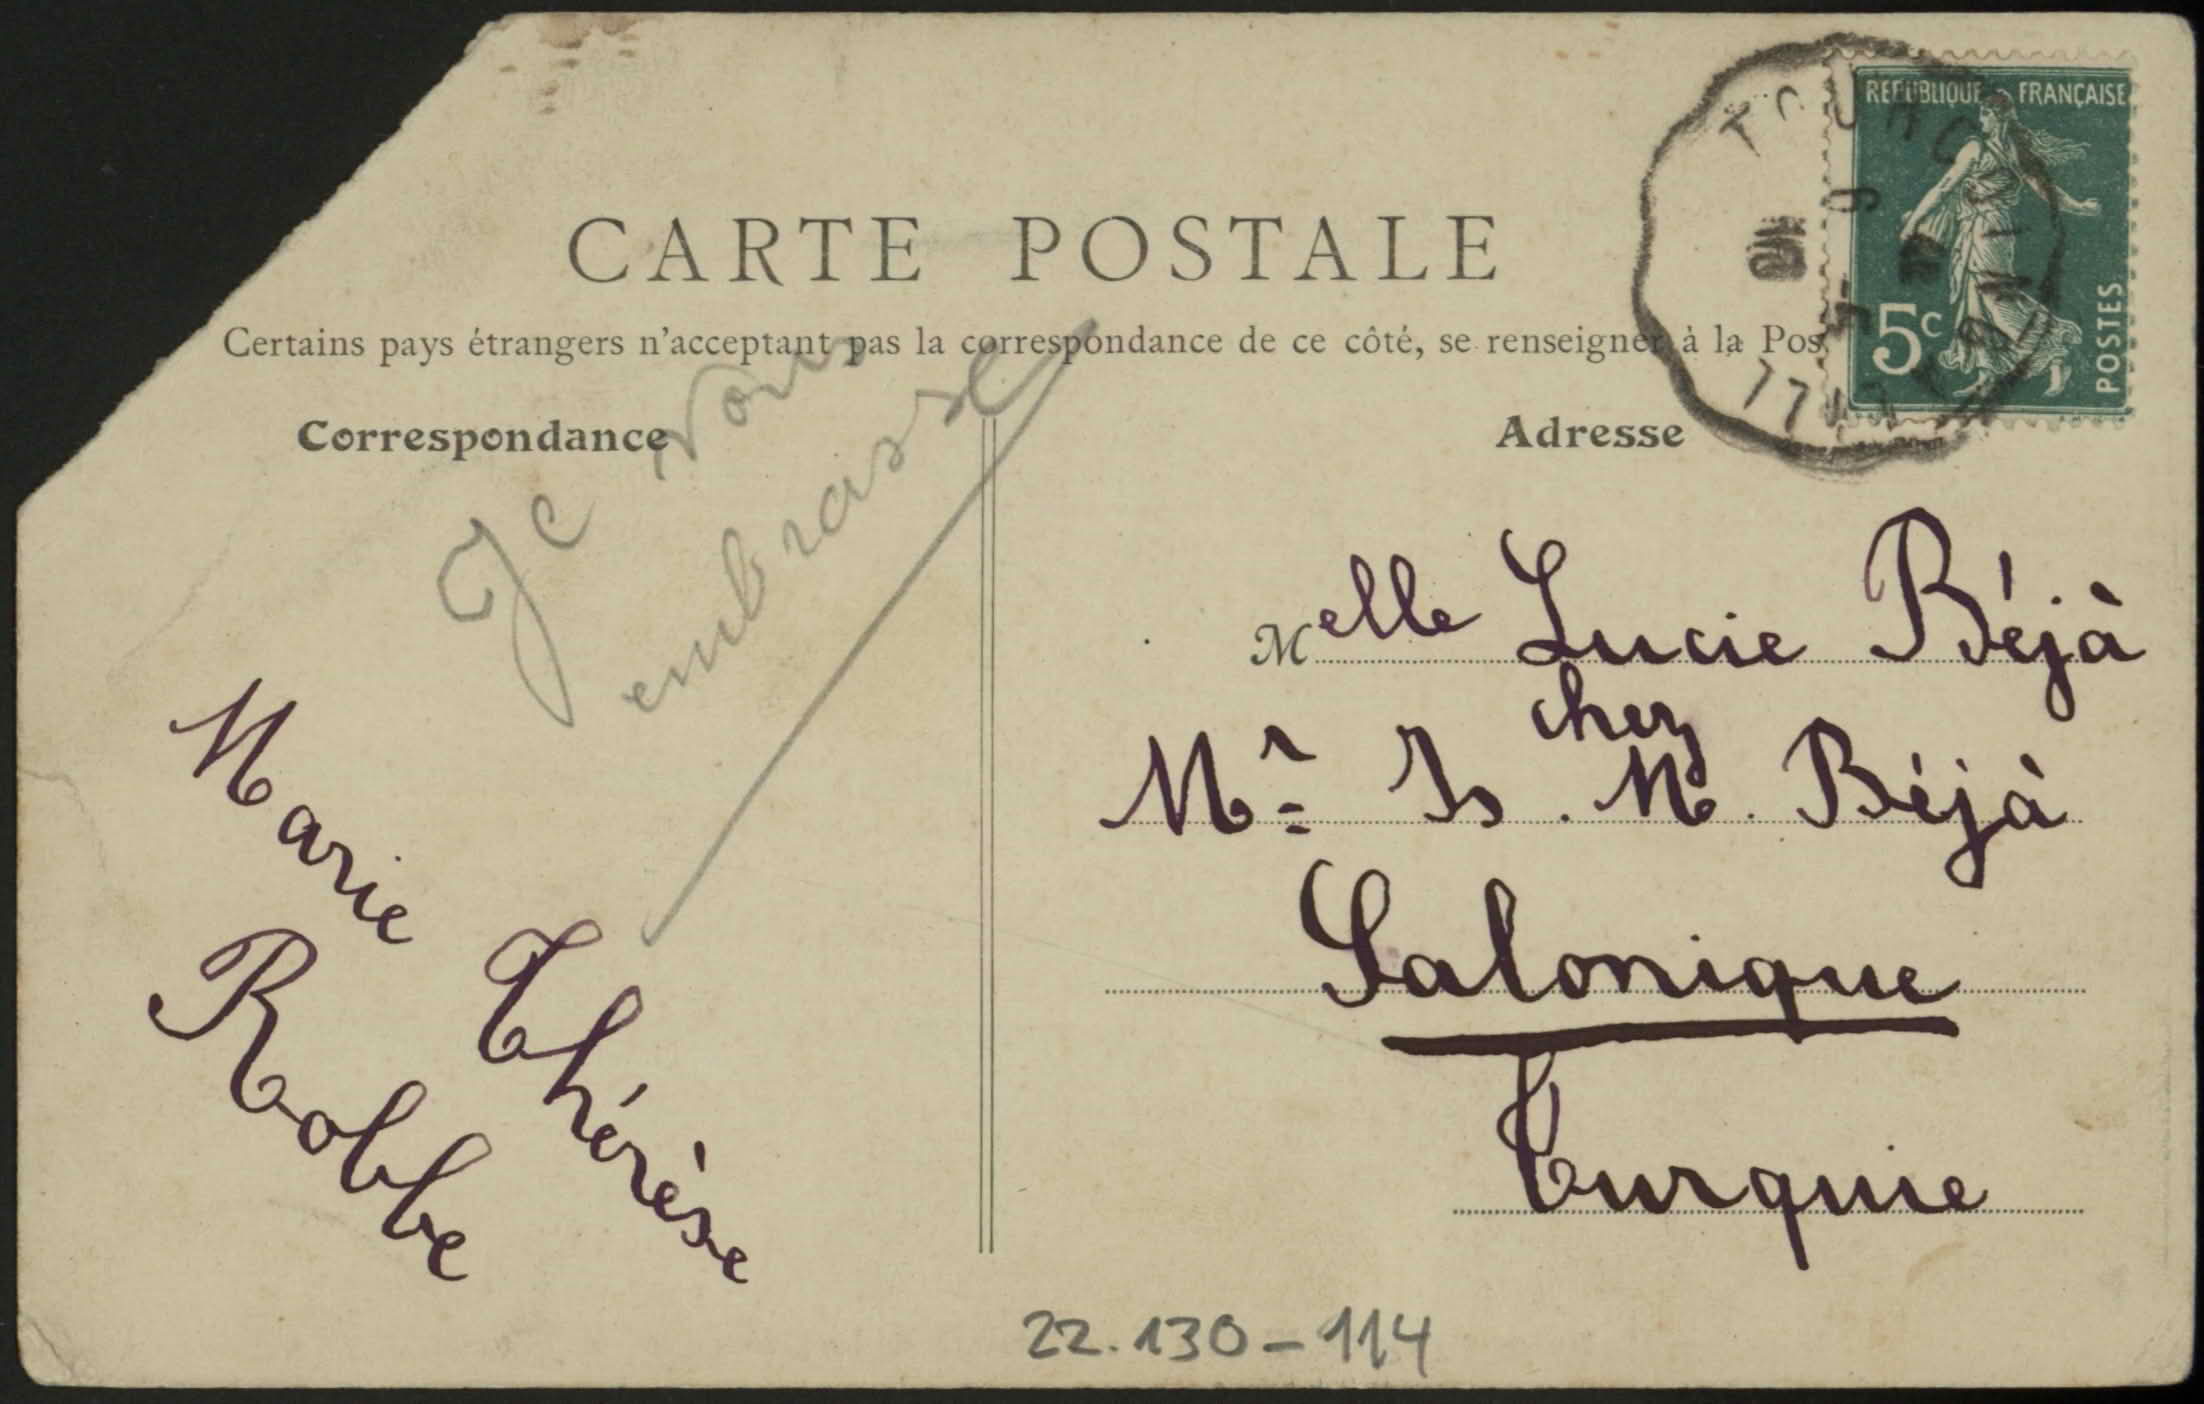 CARTE POSTALE
Certains pays étrangers n'acceptant pas la correspondance de ce côté, se renseigner à la Pos
REPUBLIQUE FRANÇAISE
5c
POSTES
Correspondance
Je vous
embrasse
Marie Thérèse
Robbe
Adresse
Melle Lucie Béjà
chez
Mr Is. M. Béjà
Salonique
Turquie
22.130-114